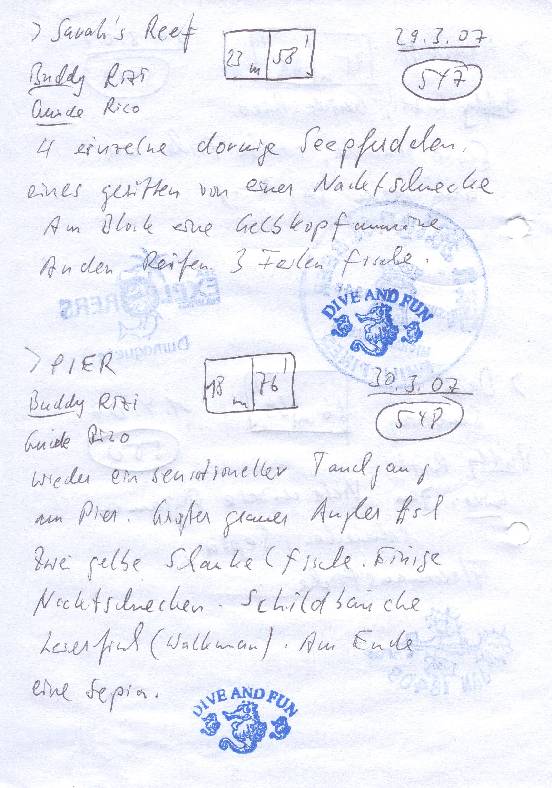 > Sarah's Reef
23 m 58'
29.3.07
547
Buddy Rizi
Guide Rico
4 einzelne dornige Seepferdchen.
eines geritten von einer Nacktschnecke
Am Block eine Gelbkopfmuräne
An den Reifen 3 Fetzenfische.
DIVE AND FUN
> PIER
18 m 76'
30.3.07
548
Buddy Rizi
Guide Rico
wieder ein sensationeller Tauchgang
am Pier. Großer grauer Anglerfisch
Zwei gelbe Schaukelfische. Einige
Nacktschnecken. Schildbäuche
(Walkman). Am Ende
eine Sepia.
DIVE AND FUN
EXPLORERS
Dumaguete